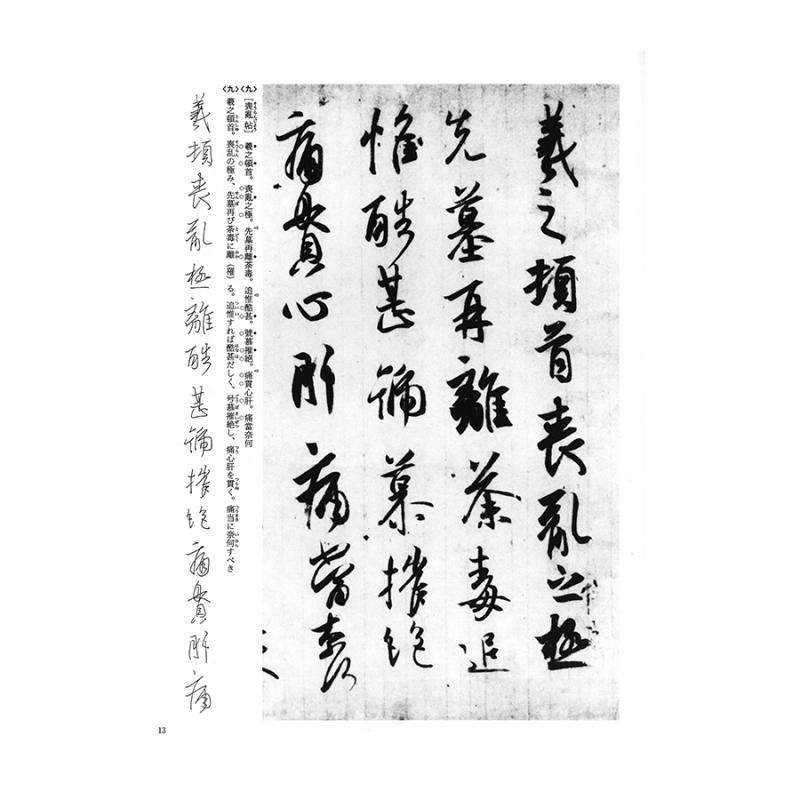 羲之頓首喪亂之極
先墓再離荼毒追
惟酷甚號慕摧絶
痛貫心肝痛當奈何
〈九〉
[喪亂帖]羲之頓首。喪亂之極。先墓再離荼毒。追惟酷甚。號慕摧絶。痛貫心肝。痛當奈何
〈九〉
羲之頓首。喪乱の極み、先墓再び荼毒に離(罹)る。追惟すれば酷甚だしく、号慕摧絶し、痛心肝を貫く。痛当に奈何すべき
羲頓喪亂極離酷甚號摧絶痛貫肝痛
13